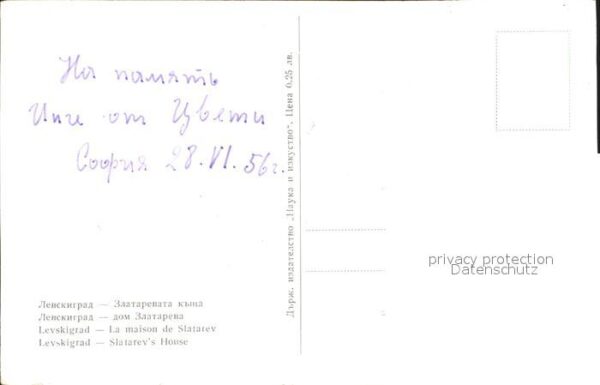 На память
Инге от Цвети
София 28.VI.56г.
Ленскиград — Златаревата къща
Ленскиград — дом Златарева
Levskigrad — La maison de Slatarev
Levskigrad — Slatarev's House
Държ. издателство „Наука и изкуство". Цена 0.25 лв.
privacy protection
Datenschutz